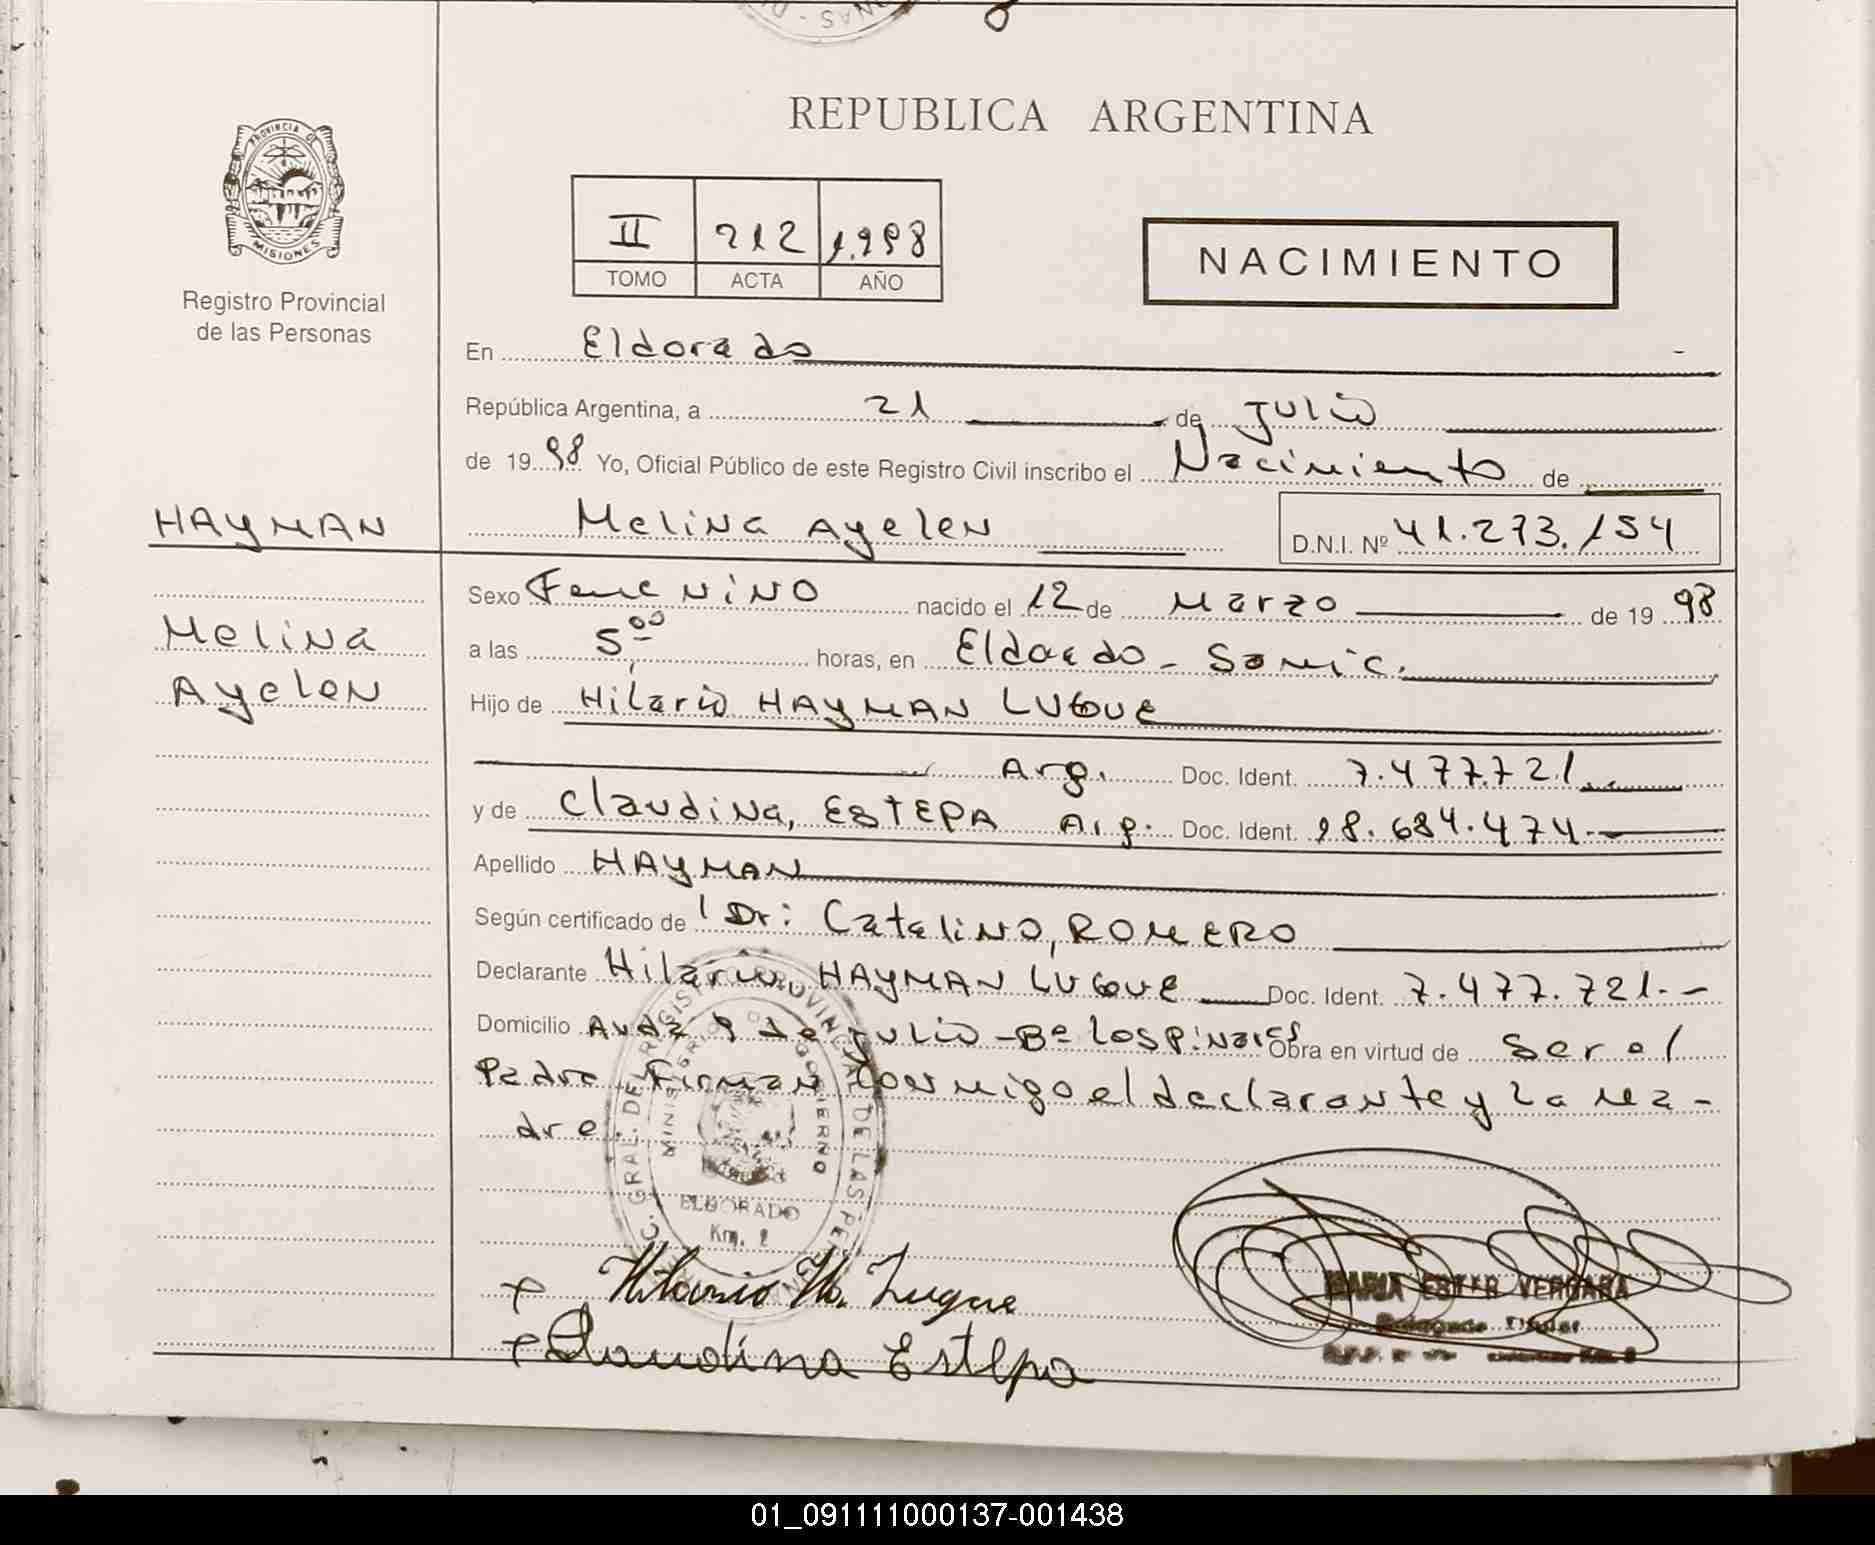 REPUBLICA ARGENTINA
PROVINCIA DE
MISIONES
Registro Provincial
de las Personas
II 212 1.998
TOMO ACTA AÑO
NACIMIENTO
En Eldorado
República Argentina, a 21 de Julio
de 1998 Yo, Oficial Público de este Registro Civil inscribo el Nacimiento de
HAYMAN
Melina Ayelen D.N.I. Nº 41.273.154
Sexo Femenino nacido el 12 de Marzo de 1998
Melina
Ayelen
a las 5,00 horas, en Eldorado - Samic.
Hijo de Hilario HAYMAN LUQUE
Arg. Doc. Ident. 7.477.721
y de Claudina, ESTEPA Arg. Doc. Ident. 18.684.474.-
Apellido HAYMAN
Según certificado de Dr: Catalino, ROMERO
Declarante Hilario, HAYMAN LUQUE Doc. Ident. 7.477.721.-
Domicilio Avda 9 de Julio - Bº Los Pinares Obra en virtud de Ser el
Padre Firman conmigo el declarante y la ma-
dre.
MINISTERIO DE GOBIERNO
ELDORADO
Km. 2
x Hilario H. Luque
x Claudina Estepa
MARIA ESTER VERGARA
01_091111000137-001438